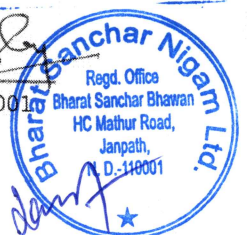 Bharat Sanchar Nigam Ltd.
Regd. Office
Bharat Sanchar Bhawan
HC Mathur Road,
Janpath,
N. D.-110001
001